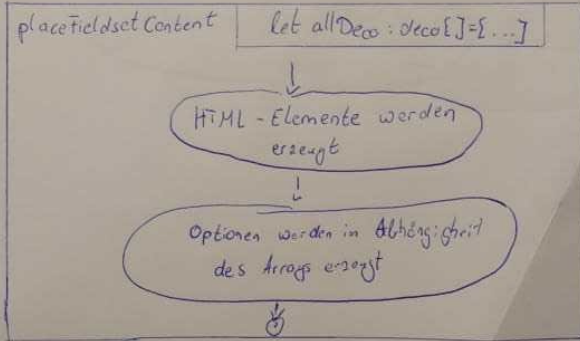 placeFieldsetContent
let allDeco : deco[]=[...]
HTML - Elemente werden
erzeugt
Optionen werden in Abhängigkeit
des Arrays erzeugt